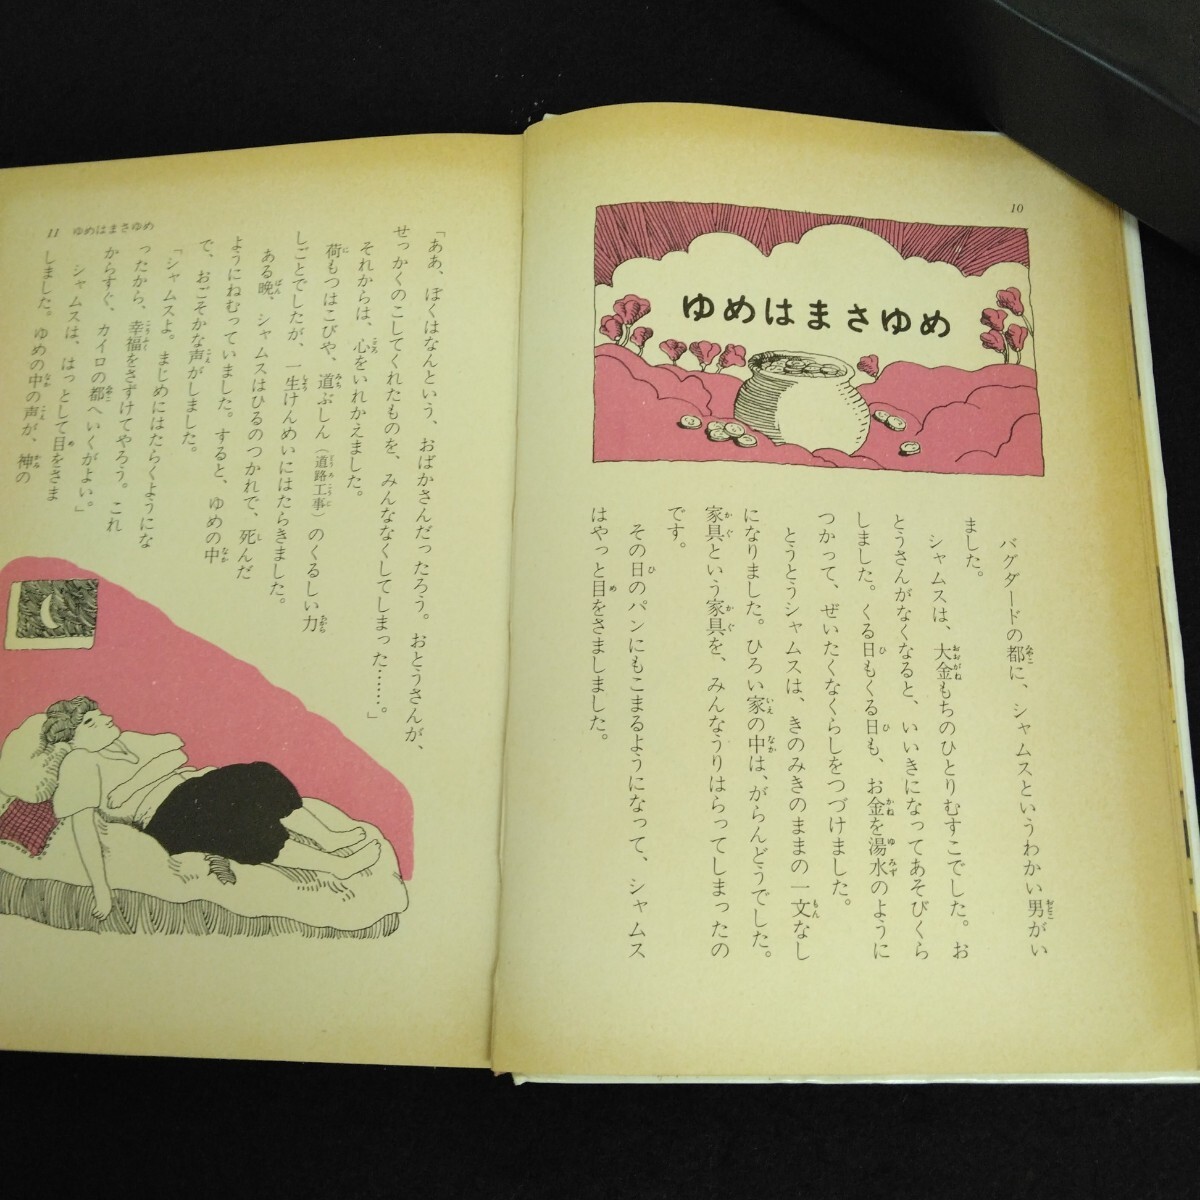 10
ゆめはまさゆめ
バグダードの都に、シャムスというわかい男がい
ました。
シャムスは、大金もちのひとりむすこでした。お
とうさんがなくなると、いいきになってあそびくら
しました。くる日もくる日も、お金を湯水のように
つかって、ぜいたくなくらしをつづけました。
とうとうシャムスは、きのみきのままの一文なし
になりました。ひろい家の中は、がらんどうでした。
家具という家具を、みんなうりはらってしまったの
です。
その日のパンにもこまるようになって、シャムス
はやっと目をさましました。
「ああ、ぼくはなんという、おばかさんだったろう。おとうさんが、
せっかくのこしてくれたものを、みんななくしてしまった……。」
それからは、心をいれかえました。
荷もつはこびや、道ぶしん（道路工事）のくるしい力
しごとでしたが、一生けんめいにはたらきました。
ある晩、シャムスはひるのつかれで、死んだ
ようにねむっていました。すると、ゆめの中
で、おごそかな声がしました。
「シャムスよ。まじめにはたらくようにな
ったから、幸福をさずけてやろう。これ
からすぐ、カイロの都へいくがよい。」
シャムスは、はっとして目をさま
しました。ゆめの中の声が、神の
11 ゆめはまさゆめ